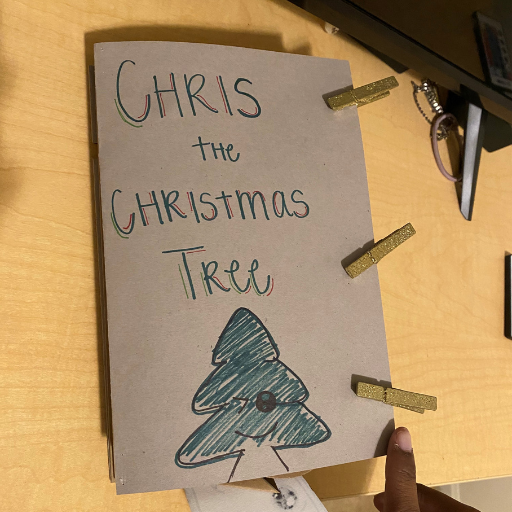 CHRIS
the
CHRistmas
TRee